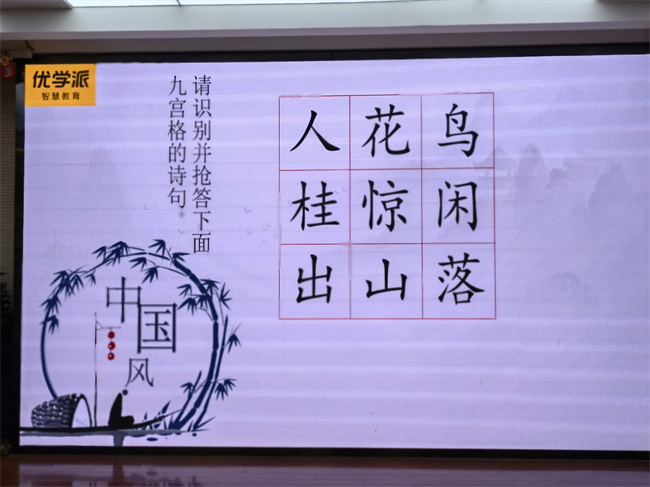 优学派
智慧教育
请识别并抢答下面
九宫格的诗句。
人花鸟
桂惊闲
出山落
中国风